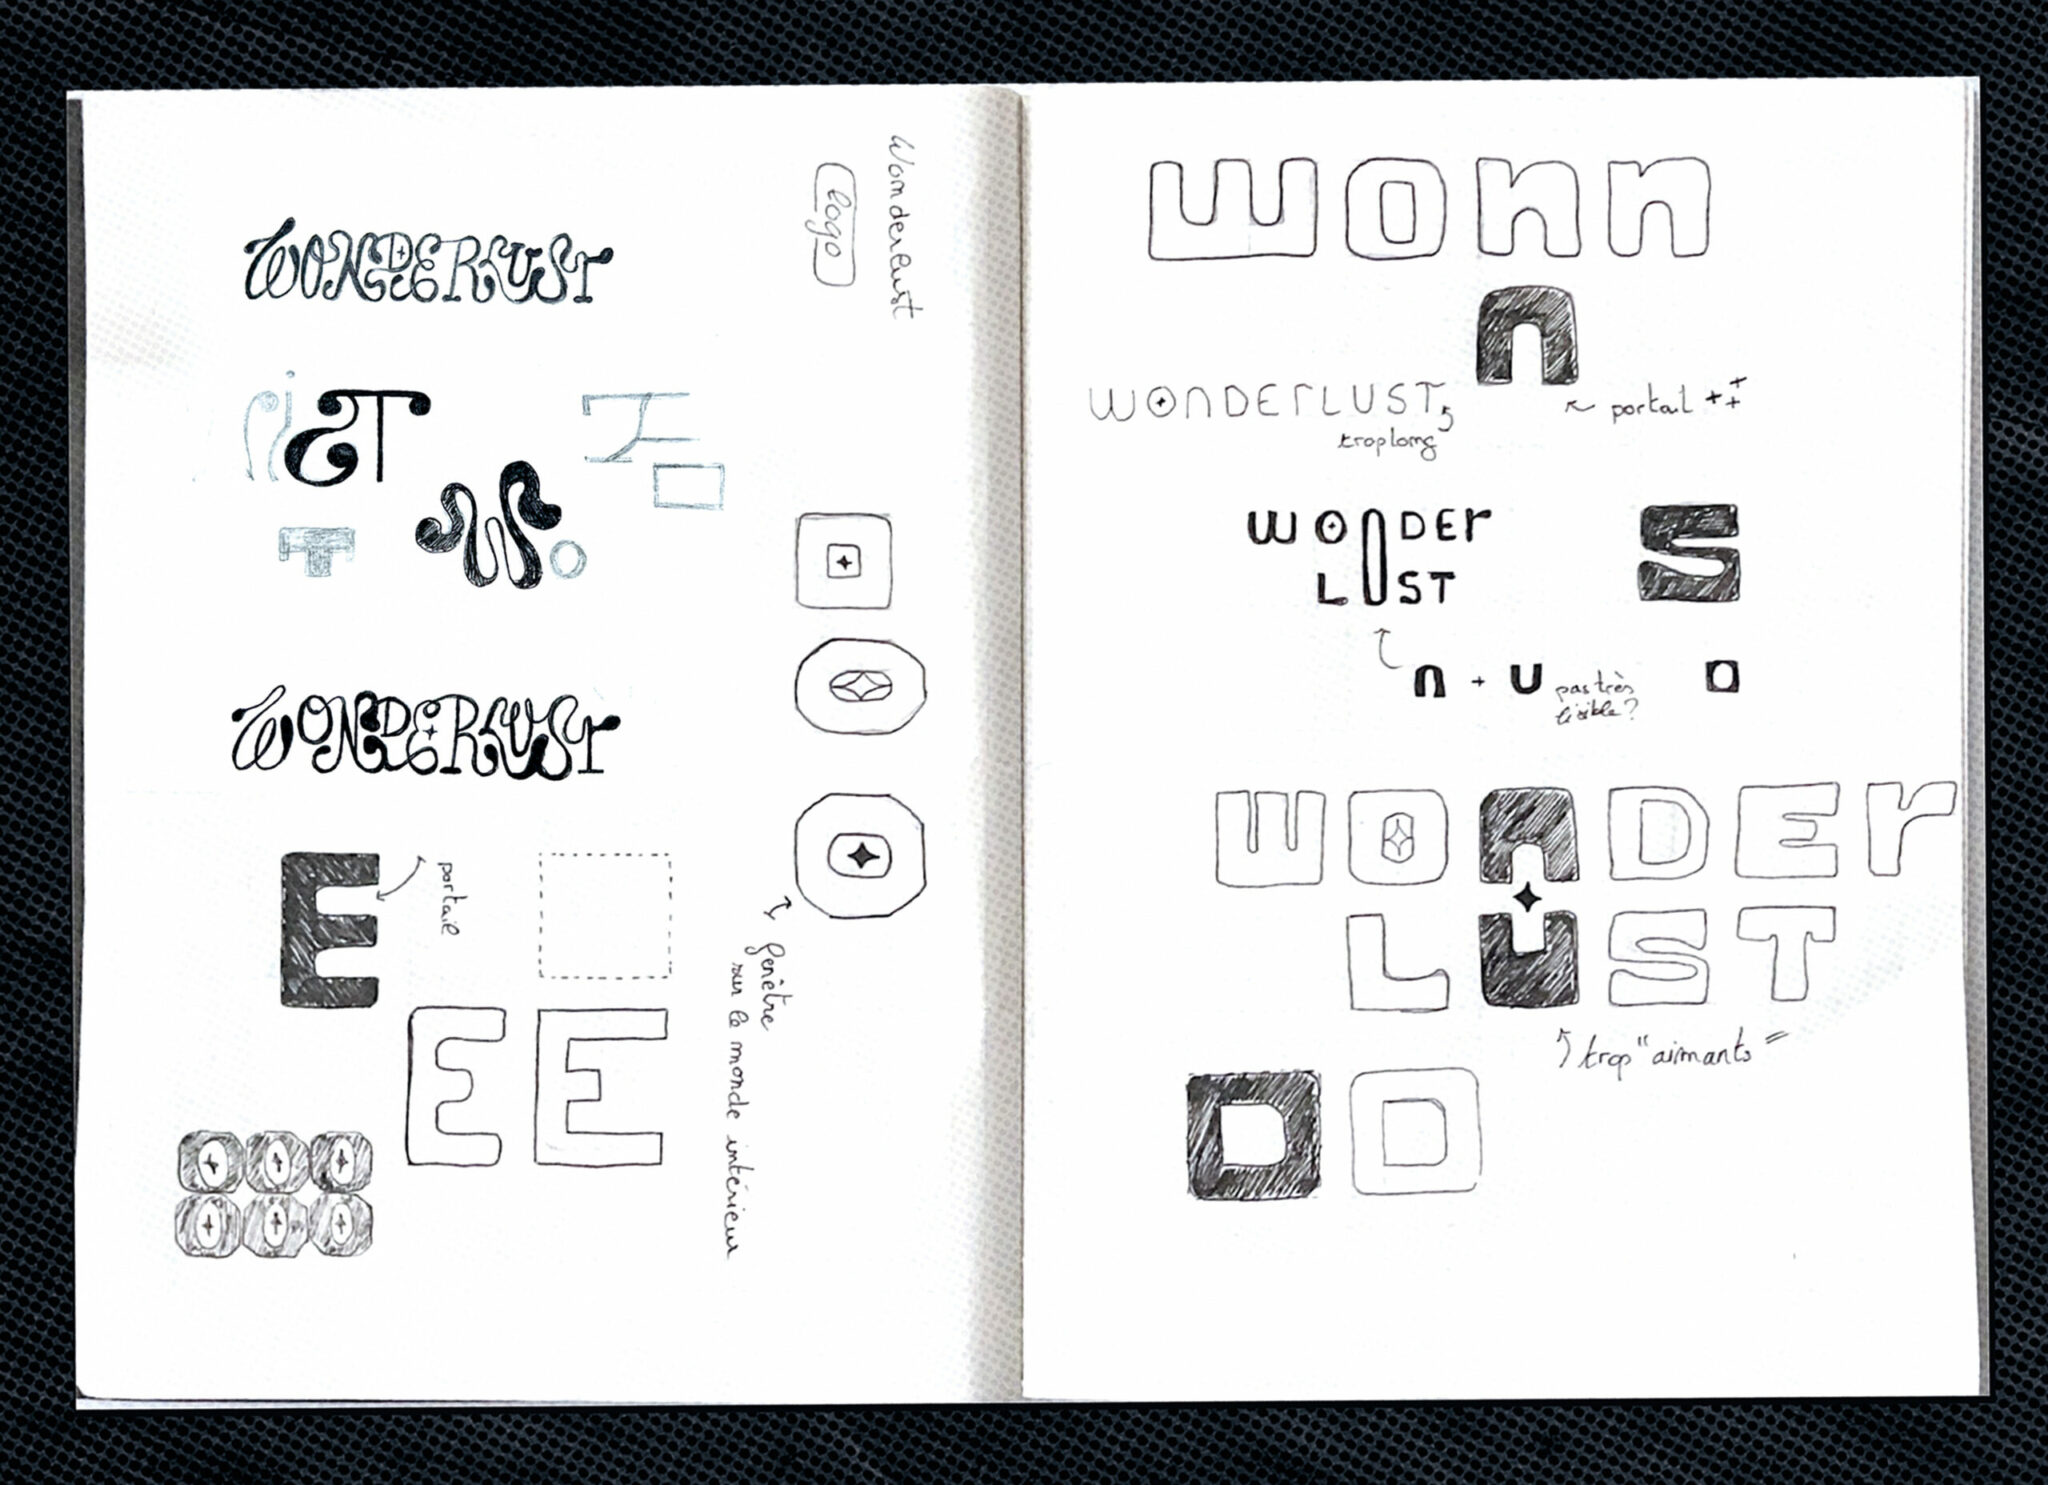 Wonderlust
logo
WONDERLUST
T
W
T
WONDERLUST
E
portail
E E
fenêtre
sur le monde intérieur
wonn
n
portail +++
WONDErLUST
trop long
WOnDEr
LUST
S
n + U pas très
lisible?
O
WOnDEr
LUST
trop "aimants"
D D